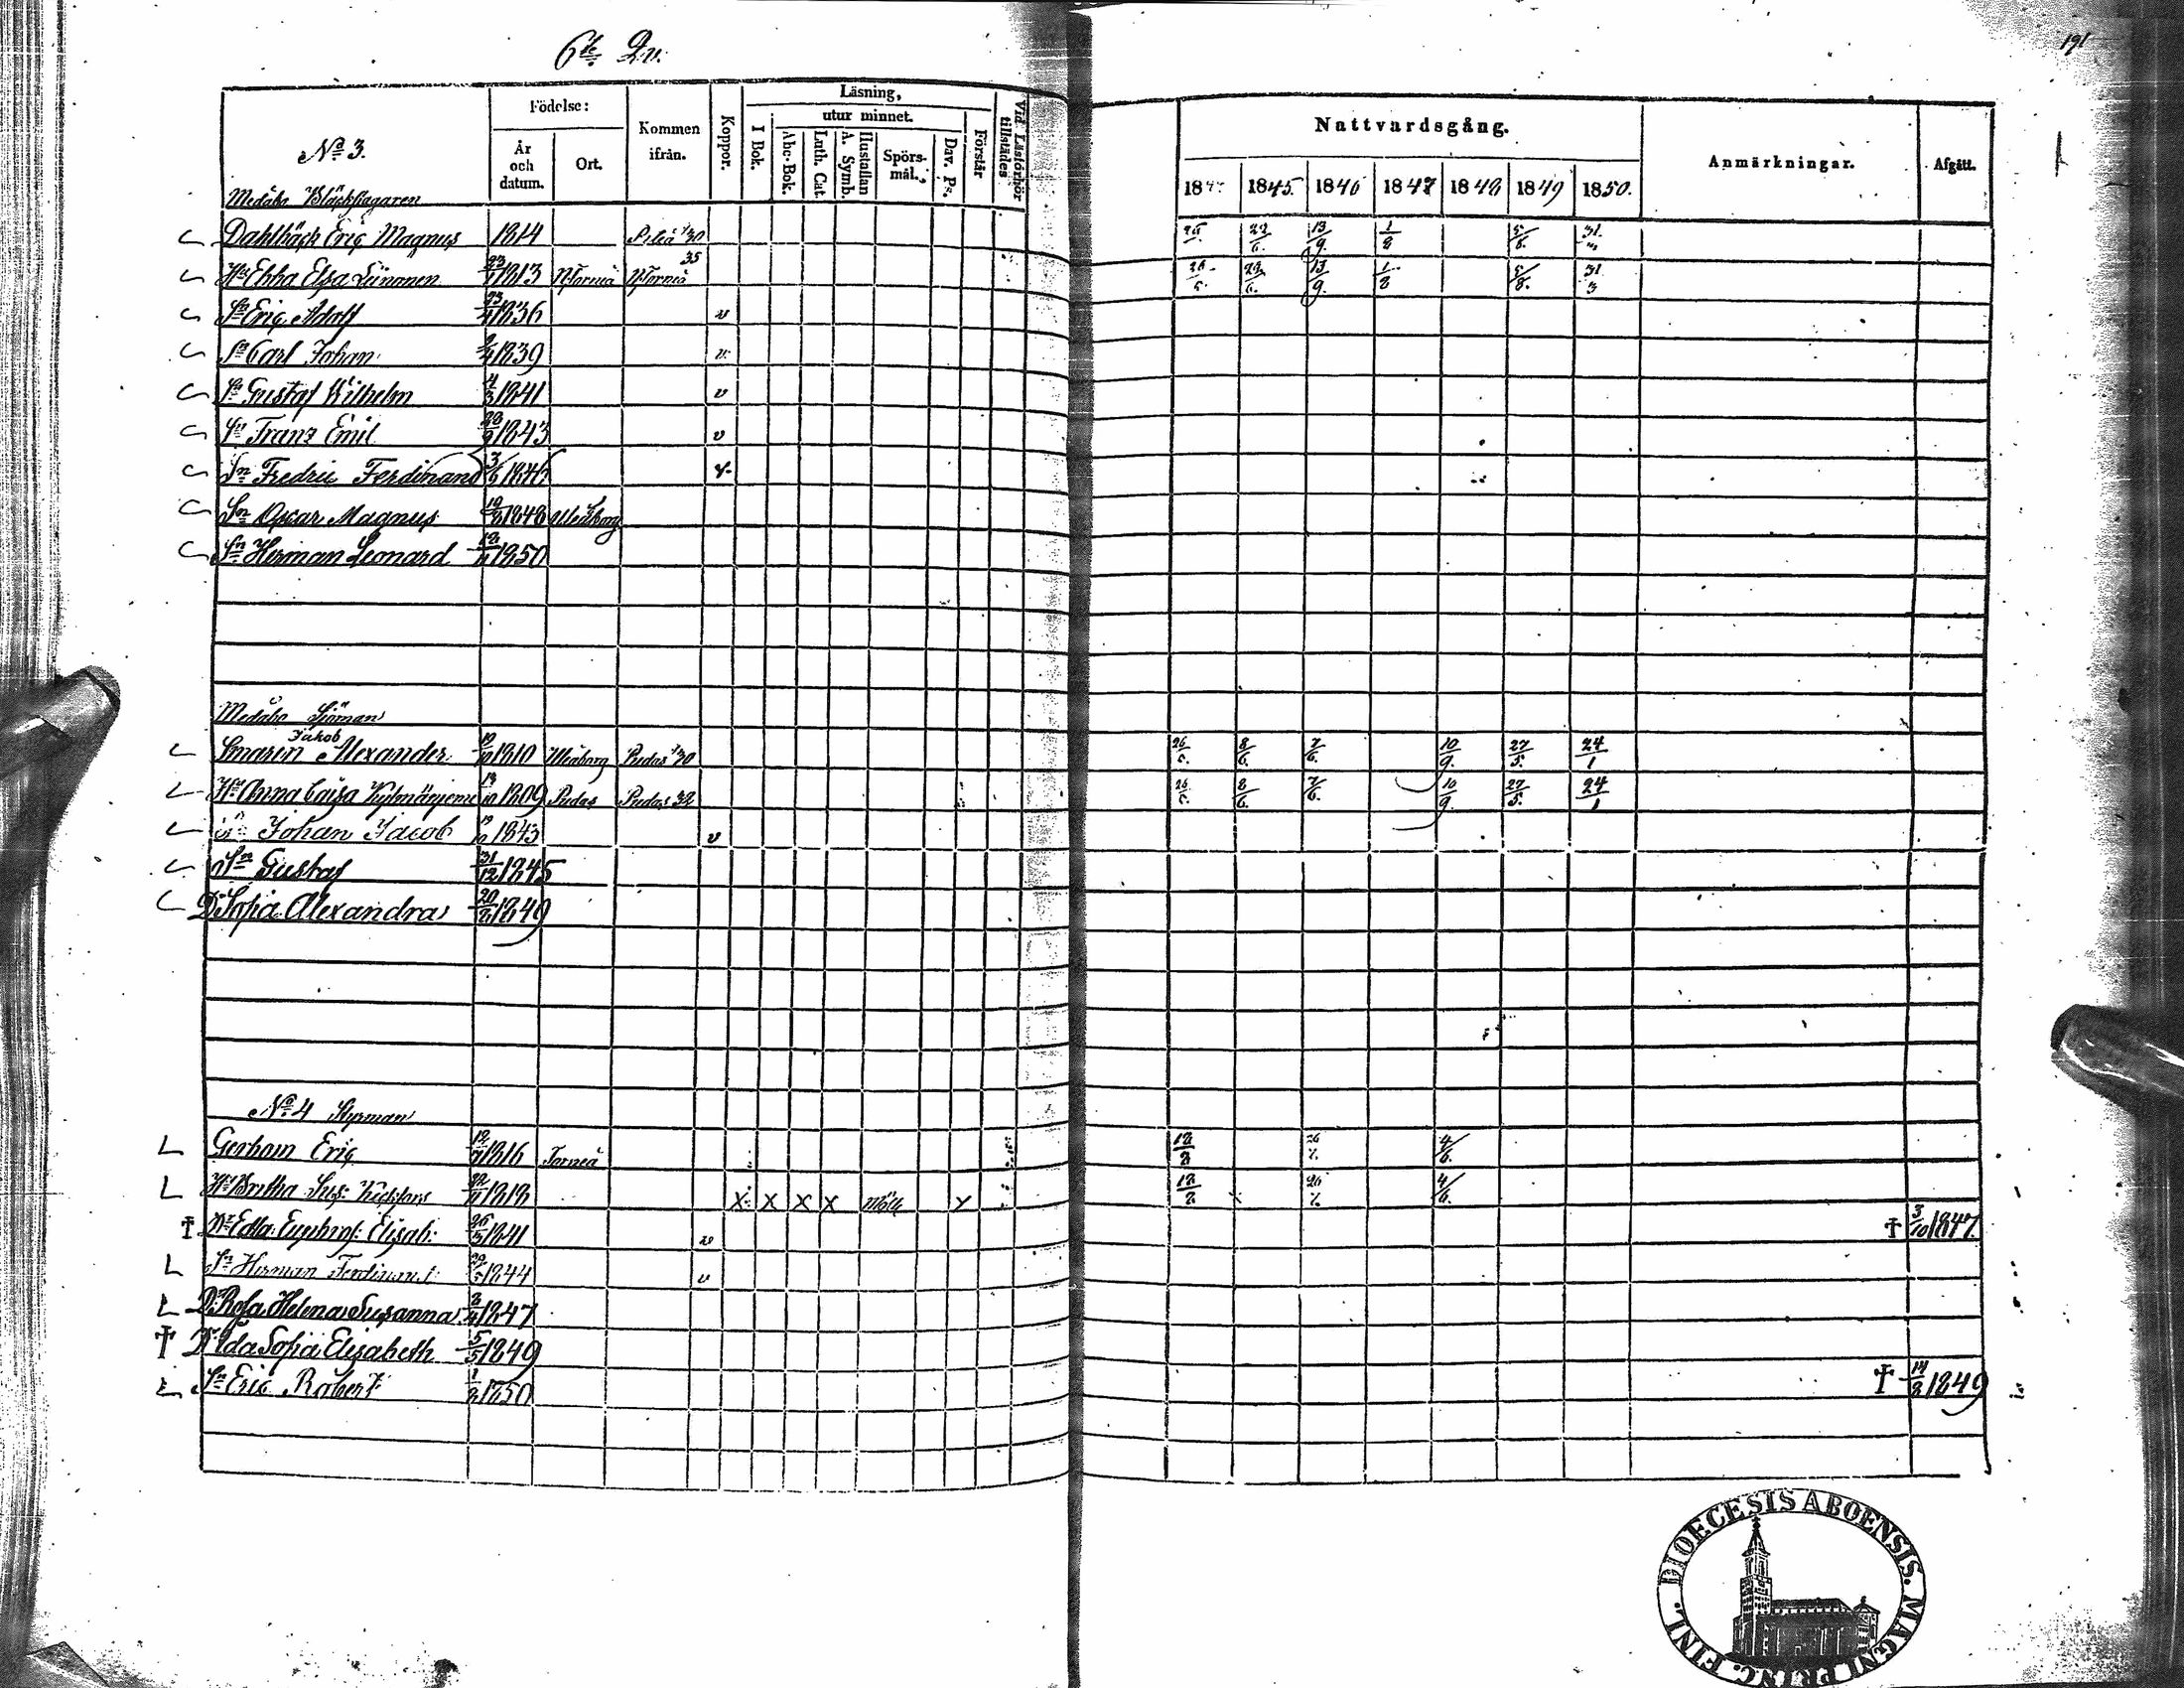 6te Qv.
191
No 3.
Födelse:
År och datum.
Ort.
Kommen ifrån.
Koppor.
Läsning,
I Bok.
utur minnet.
Abc-Bok.
Luth. Cat.
Hustaflan A. Symb.
Spörsmål.
Dav. Ps.
Förstår
Vid Läsförhör tillstädes
Nattvardsgång.
1845. 1846 1847 1848 1849 1850.
Anmärkningar.
Afgått.
Medåbo Bläckslagaren
Dahlbäck Eric Magnus 1814 30 22/6. 13/9. 1/8 5/8. 31/3
Hu Ebba Elsa Liinonen 23/1 1813 N.Torneå N.Torneå 35 22/6. 13/9. 1/8 5/8. 31/3
Sn Eric Adolf 1836 v
Sn Carl Johan 1839 v
Sn Gustaf Wilhelm 4/3 1841 v
Sn Franz Emil 28/9 1843 v
Sn Fredric Ferdinand 3/6 1846 v
Sn Oscar Magnus 1848 Uleåborg
Sn Herman Leonard 1850
Medåbo Sjöman
Smarin Jakob Alexander 1810 Uleåborg Pudas 30 26/5. 8/6. 7/6. 10/9. 27/5. 24/1
Hu Anna Caisa 13/10 1809 Pudas Pudas 32 26/5. 8/6. 7/6. 10/9. 27/5. 24/1
Sn Johan Jacob 19/10 1843 v
Sn Gustaf 31/12 1845
Dr Sofia Alexandra 1849
No 4 Styrman
Gerham Eric 1816 Torneå 18/8 26/7. 4/6.
Hu Britha Sus: 1818 X X X X X 18/8 26/7. 4/6.
Dr Edla Euphros: Elisab: 26/5 1841 v † 3/10 1847.
Sn Herman Ferdinand 1844 v
Dr Rosa Helena Susanna 1847
† Dr Ida Sofia Elisabeth 5/5 1849
Sn Eric Robert 1850 † 14/8 1849
DIOECESIS ABOENSIS. MAGNI PRINC. FINL.